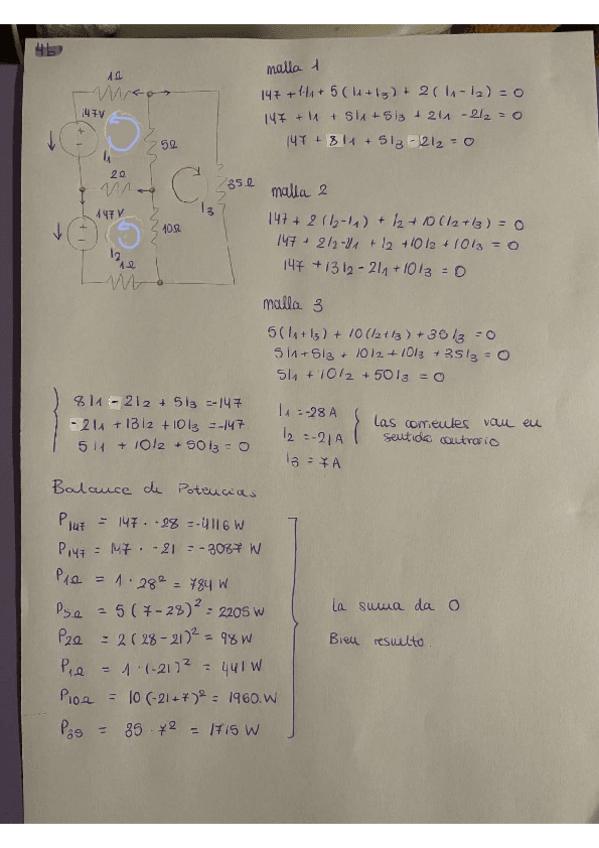 4b
1Ω
147V
+
-
I1
5Ω
2Ω
I3
35Ω
147V
+
-
I2
10Ω
1Ω
malla 1
147 + 1·I1 + 5(I1+I3) + 2(I1-I2) = 0
147 + I1 + 5I1 + 5I3 + 2I1 - 2I2 = 0
147 + 8I1 + 5I3 - 2I2 = 0
malla 2
147 + 2(I2-I1) + I2 + 10(I2+I3) = 0
147 + 2I2 - 2I1 + I2 + 10I2 + 10I3 = 0
147 + 13I2 - 2I1 + 10I3 = 0
malla 3
5(I1+I3) + 10(I2+I3) + 35I3 = 0
5I1 + 5I3 + 10I2 + 10I3 + 35I3 = 0
5I1 + 10I2 + 50I3 = 0
8I1 - 2I2 + 5I3 = -147
-2I1 + 13I2 + 10I3 = -147
5I1 + 10I2 + 50I3 = 0
I1 = -28 A
I2 = -21 A
I3 = 7 A
Las corrientes van en
sentido contrario
Balance de Potencias
P147 = 147 · -28 = -4116 W
P147 = 147 · -21 = -3087 W
P1Ω = 1 · 28² = 784 W
P5Ω = 5(7-28)² = 2205 W
P2Ω = 2(28-21)² = 98 W
P1Ω = 1·(-21)² = 441 W
P10Ω = 10(-21+7)² = 1960 W
P35 = 35 · 7² = 1715 W
La suma da 0
Bien resuelto.